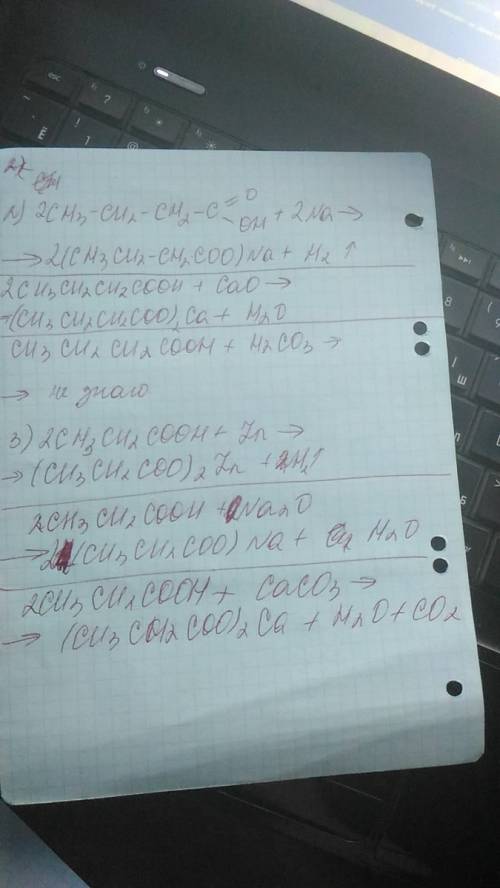 2)
1) 2CH3-CH2-CH2-C =O -OH + 2Na →
→ 2(CH3CH2-CH2COO)Na + H2 ↑
2CH3CH2CH2COOH + CaO →
→(CH3CH2CH2COO)2Ca + H2O
CH3CH2CH2COOH + H2CO3 →
→ не знаю
3) 2CH3CH2COOH + Zn →
→ (CH3CH2COO)2Zn + H2↑
2CH3CH2COOH + Na2O
→ 2(CH3CH2COO)Na + H2O
2CH3CH2COOH + CaCO3 →
→ (CH3CH2COO)2Ca + H2O + CO2
esc
?
!
1
Ё
8
Ш
Б